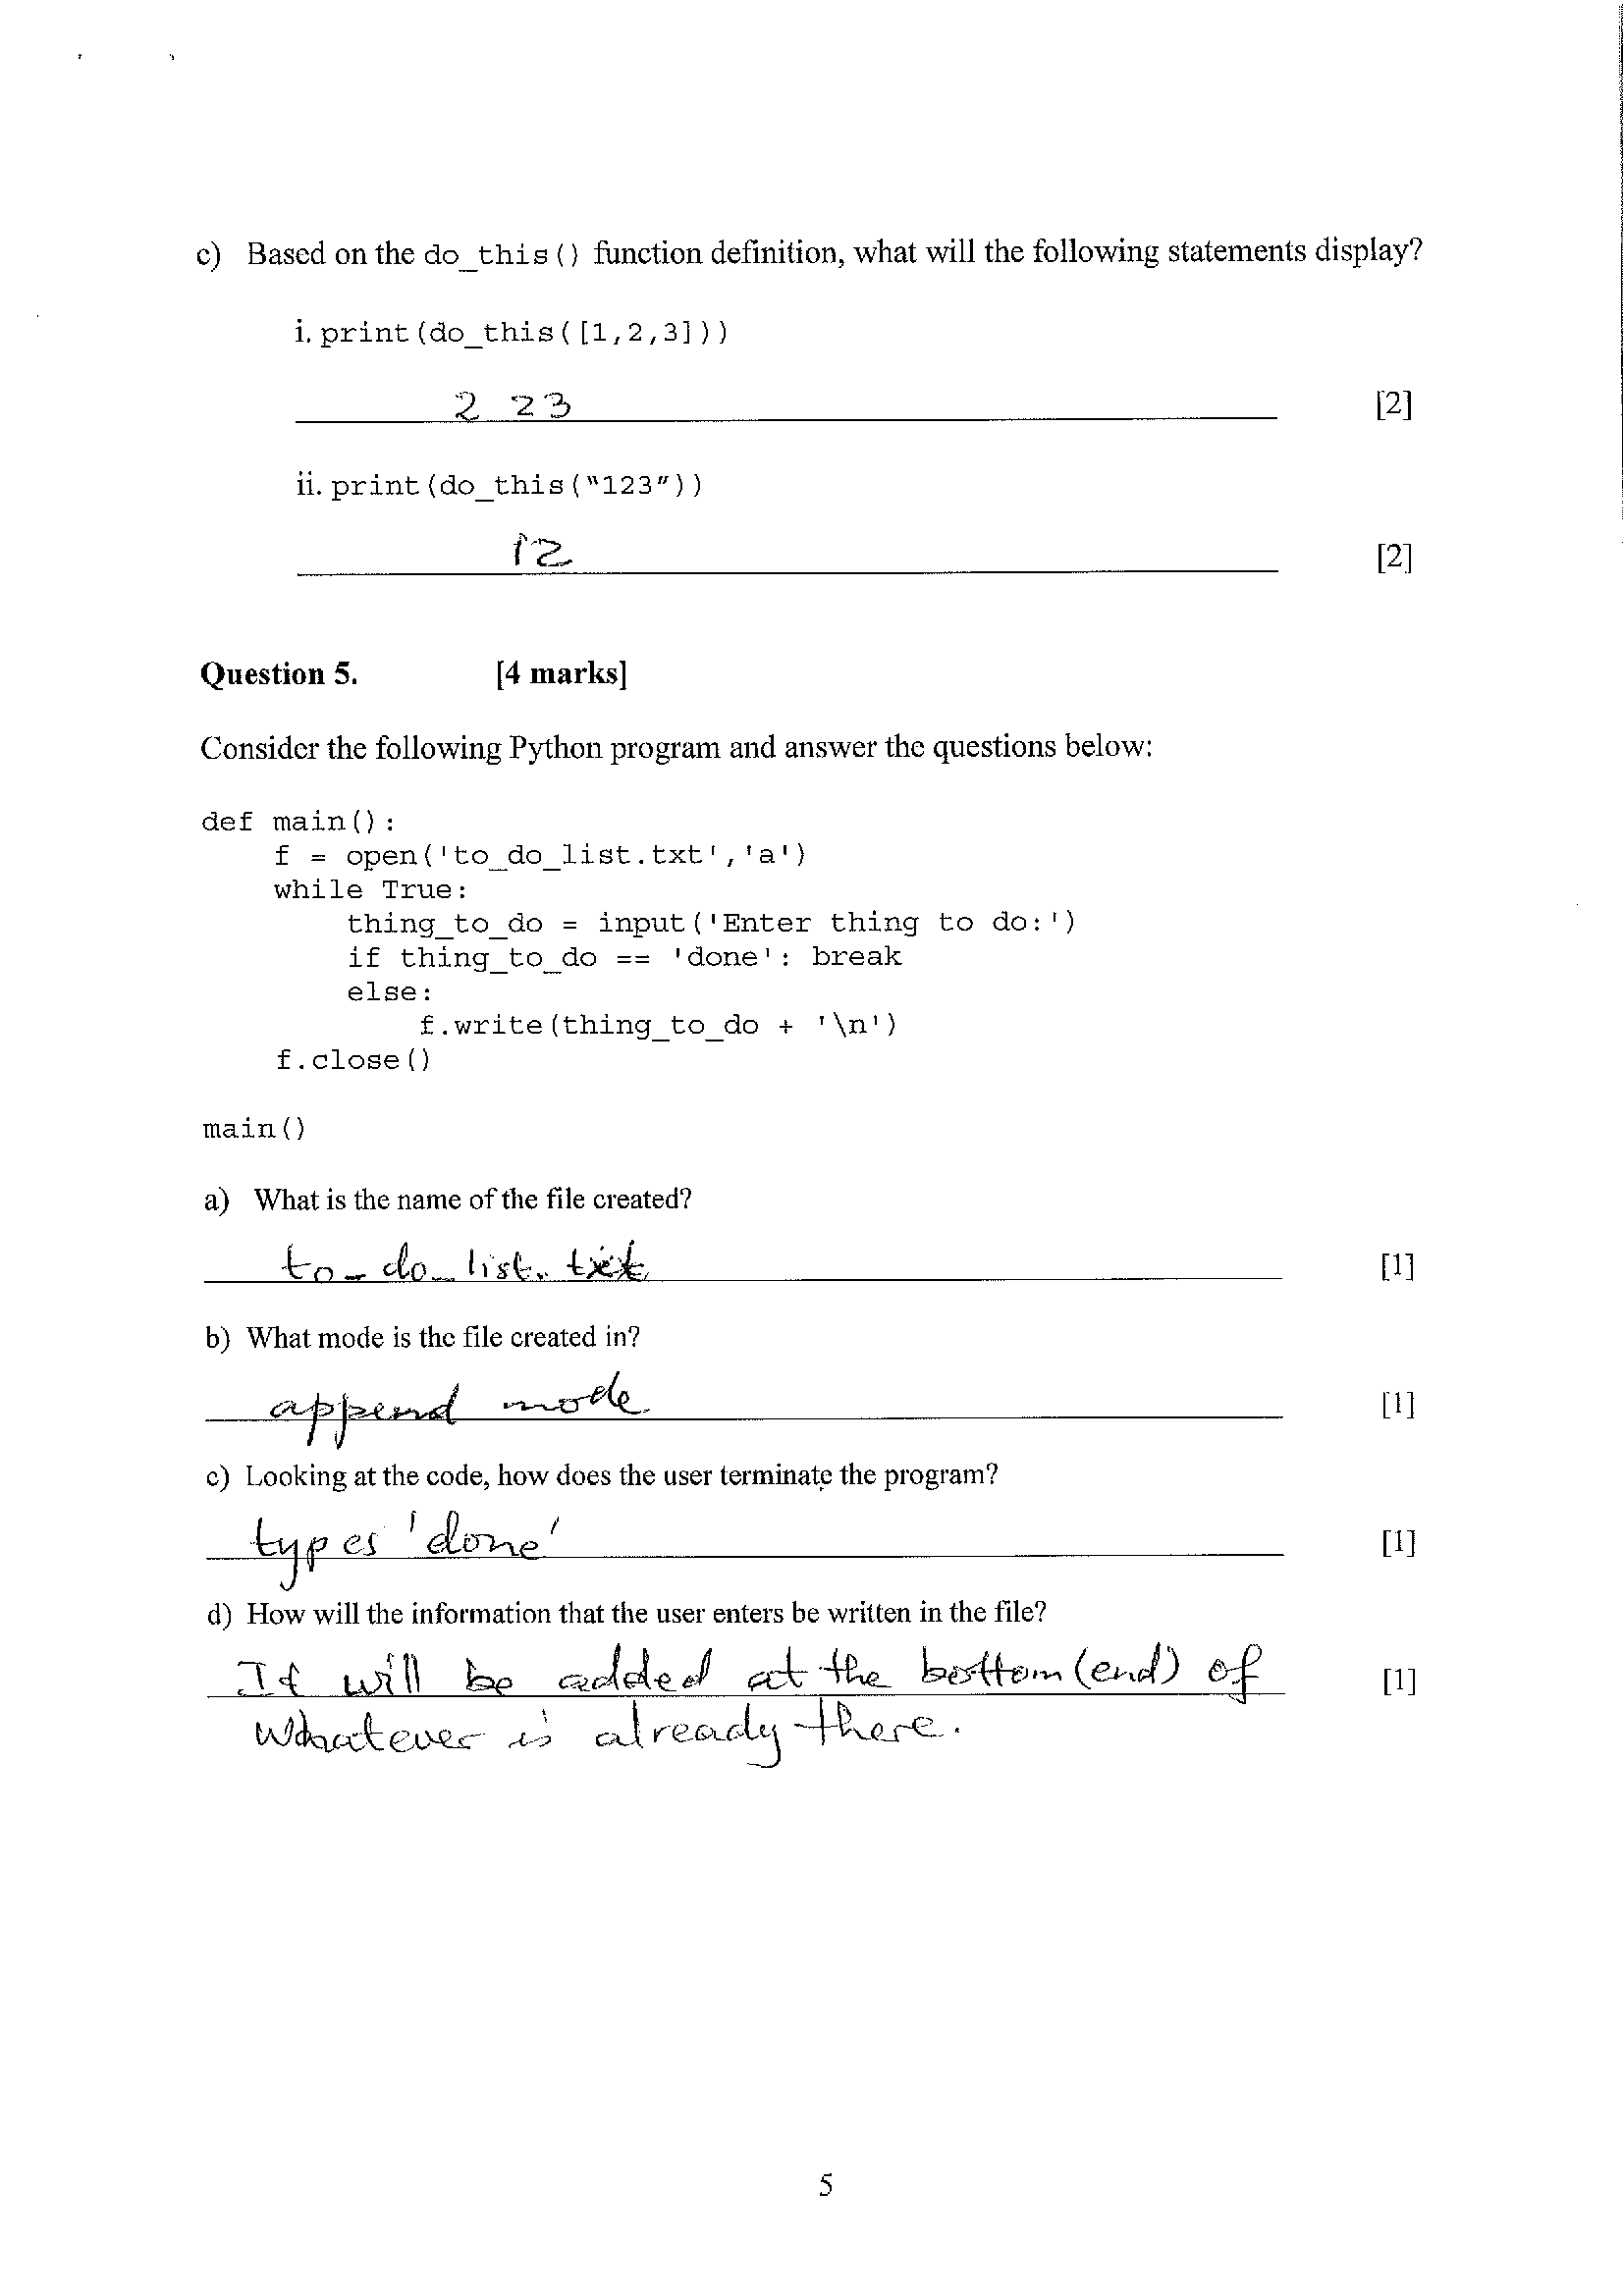 c) Based on the do_this() function definition, what will the following statements display?
i. print(do_this([1,2,3]))
2 23 [2]
ii. print(do_this(“123”))
12 [2]
Question 5. [4 marks]
Consider the following Python program and answer the questions below:
def main():
    f = open('to_do_list.txt','a')
    while True:
        thing_to_do = input('Enter thing to do:')
        if thing_to_do == 'done': break
        else:
            f.write(thing_to_do + '\n')
    f.close()
main()
a) What is the name of the file created?
to_do_list.txt [1]
b) What mode is the file created in?
append mode [1]
c) Looking at the code, how does the user terminate the program?
types 'done' [1]
d) How will the information that the user enters be written in the file?
It will be added at the bottom (end) of [1]
whatever is already there.
5